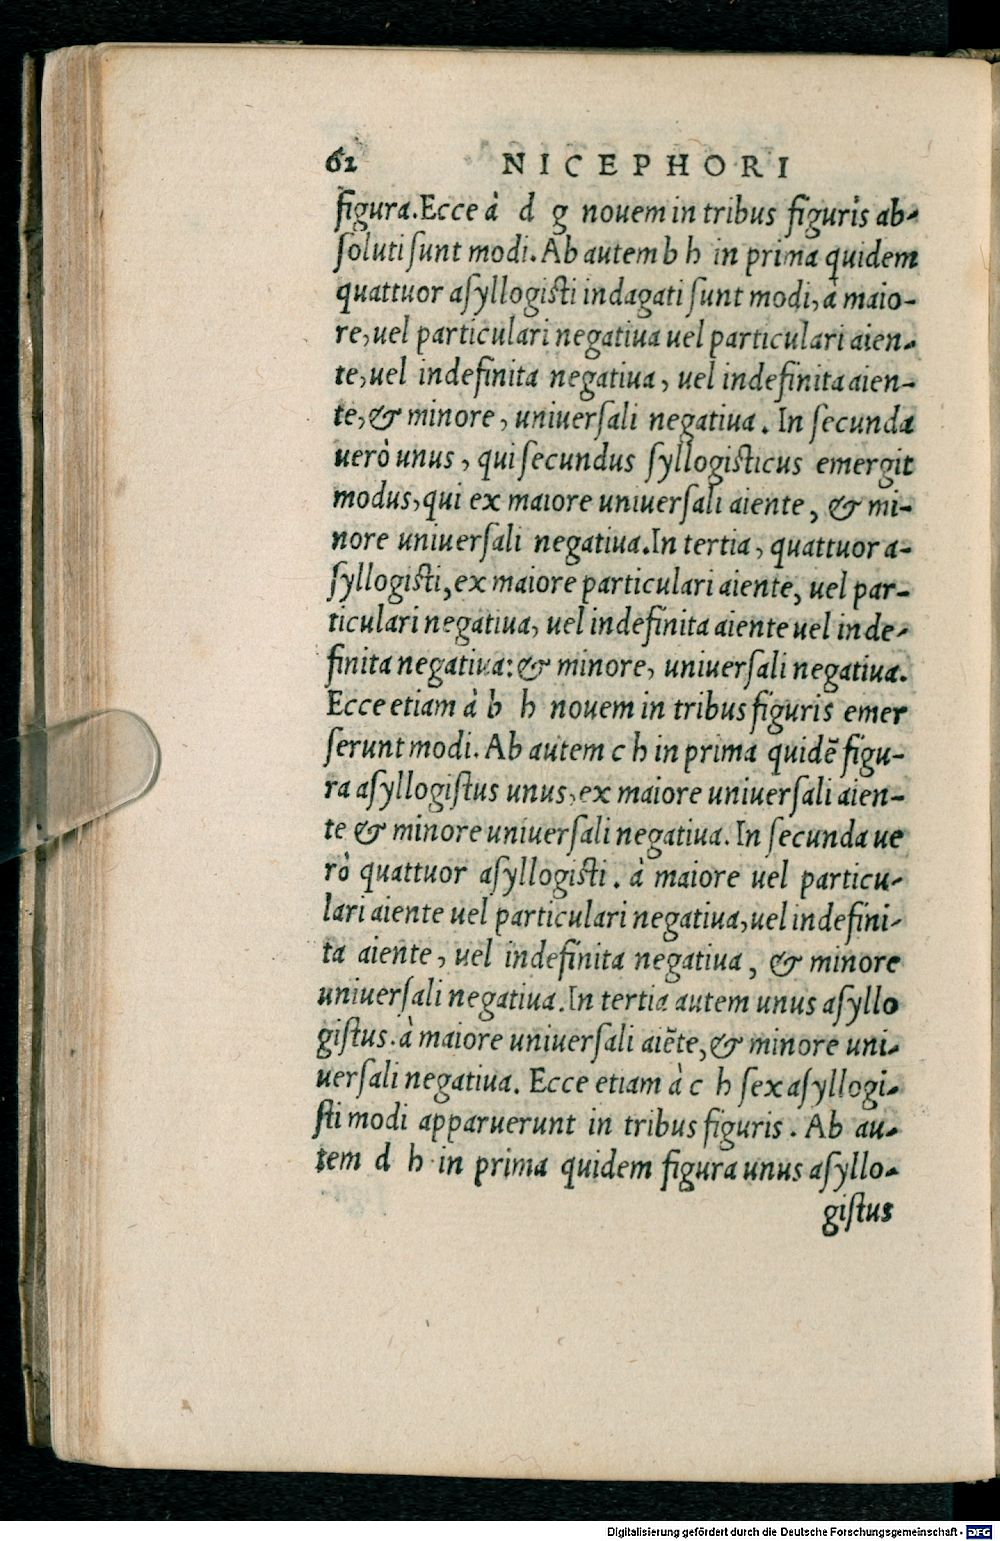 62 NICEPHORI
figura. Ecce à d g nouem in tribus figuris ab-
ſoluti ſunt modi. Ab autem b h in prima quidem
quattuor aſyllogiſti indagati ſunt modi, à maio-
re, uel particulari negatiua uel particulari aien-
te, uel indefinita negatiua, uel indefinita aien-
te, & minore, uniuerſali negatiua. In ſecunda
uerò unus, qui ſecundus ſyllogiſticus emergit
modus, qui ex maiore uniuerſali aiente, & mi-
nore uniuerſali negatiua. In tertia, quattuor a-
ſyllogiſti, ex maiore particulari aiente, uel par-
ticulari negatiua, uel indefinita aiente uel inde-
finita negatiua: & minore, uniuerſali negatiua.
Ecce etiam à b h nouem in tribus figuris emer
ſerunt modi. Ab autem c h in prima quidẽ figu-
ra aſyllogiſtus unus, ex maiore uniuerſali aien-
te & minore uniuerſali negatiua. In ſecunda ue
rò quattuor aſyllogiſti. à maiore uel particu-
lari aiente uel particulari negatiua, uel indefini-
ta aiente, uel indefinita negatiua, & minore
uniuerſali negatiua. In tertia autem unus aſyllo
giſtus. à maiore uniuerſali aiẽte, & minore uni-
uerſali negatiua. Ecce etiam à c h ſex aſyllogi-
ſti modi apparuerunt in tribus figuris. Ab au-
tem d h in prima quidem figura unus aſyllo-
giſtus
Digitalisierung gefördert durch die Deutsche Forschungsgemeinschaft - DFG